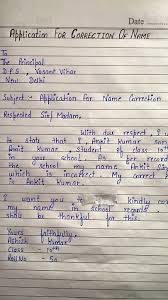 Date
Application For Correction Of Name
To
The Principal
D.P.S, Vasant Vihar
New Delhi
Subject - Application for Name Correction
Respected Sir/Madam,
With due respect, I
to state that I, Ankit Kumar
Ankit Kumar, Student of class 10th
in your school. As per record
the school my name Ankit
which is incorrect. My correct
is Ankit Kumar.
I want you to Kindly
my name in school records. I
shall be thankful for this.
Yours faithfully
Kumar
Class - 10th
Roll No - 50